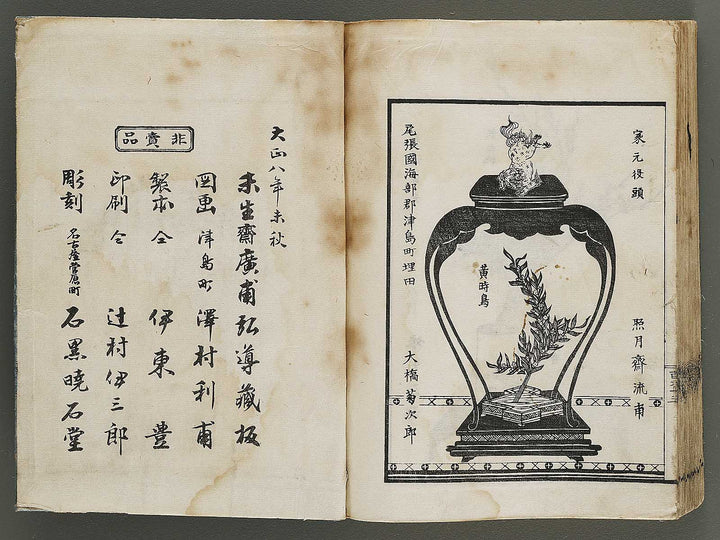 家元役頭
照月齋流甫
黄時鳥
尾張國海部郡津島町埋田
大橋菊次郎
大正八年未秋
非賣品
未生齋廣甫弘導藏板
図画 津島町 澤村利甫
製本 仝 伊東豊
印刷 仝 辻村伊三郎
彫刻 名古屋市菅原町 石黒曉石堂